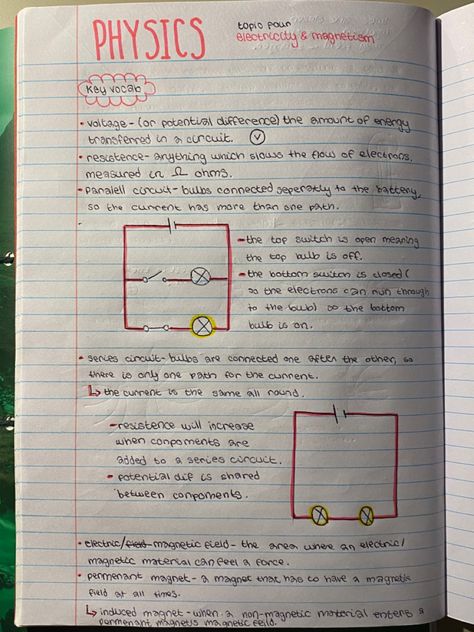 PHYSICS
topic four
electricity & magnetism
Key vocab
• voltage - (or potential difference) the amount of energy
transferred in a circuit. V
• resistence - anything which slows the flow of electrons,
measured in Ω ohms.
• paralell circuit - bulbs connected seperatly to the battery,
so the current has more than one path.
- the top switch is open meaning
the top bulb is off.
- the bottom switch is closed (
so the electrons can run through
to the bulb) so the bottom
bulb is on.
• series circuit - bulbs are connected one after the other, so
there is only one path for the current.
↳ the current is the same all round.
- resistence will increase
when conpoments are
added to a series circuit.
• potential dif is shared
between conpoments.
• electric/field magnetic field - the area where an electric/
magnetic material can feel a force.
• permenant magnet - a magnet that has to have a magnetic
field at all times.
↳ induced magnet - when a non-magnetic material enters a
permenant magnets magnetic feild.